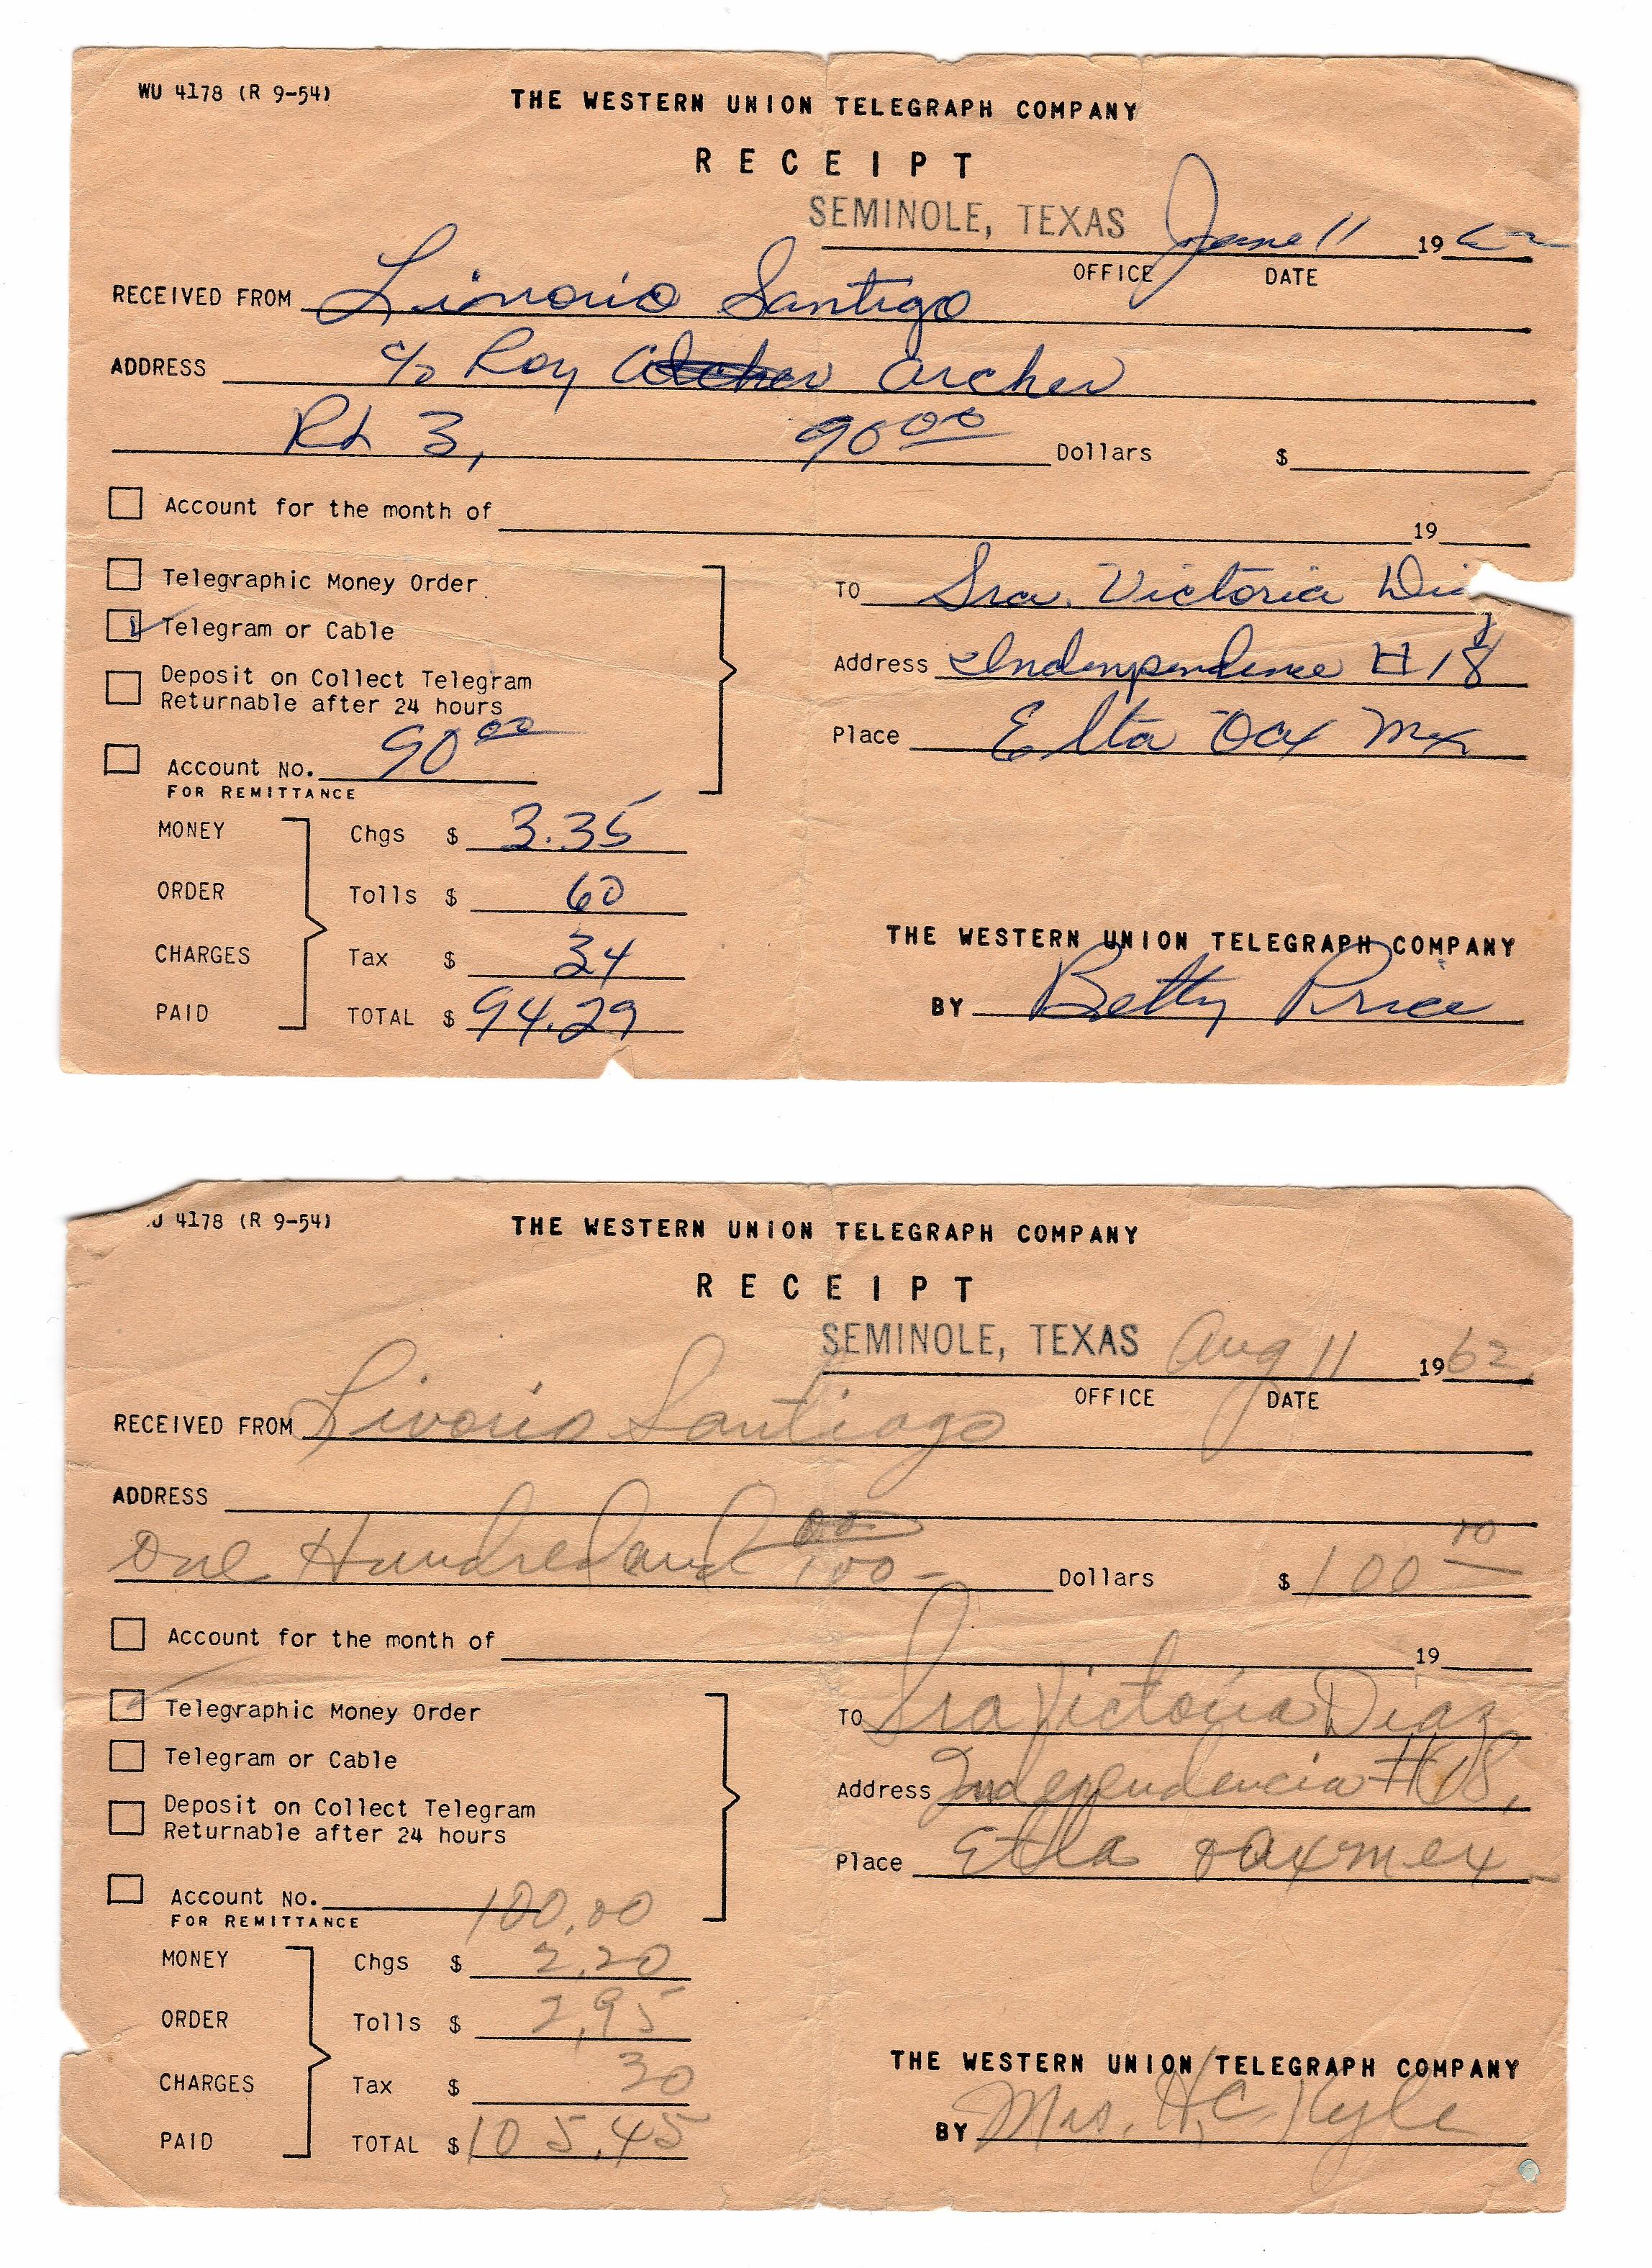 WU 4178 (R 9-54)
THE WESTERN UNION TELEGRAPH COMPANY
RECEIPT
SEMINOLE, TEXAS June 11 1962
OFFICE DATE
RECEIVED FROM Linorio Santigo
ADDRESS c/o Roy Archer
Rt 3, 90 00 Dollars $
Account for the month of 19
Telegraphic Money Order
Telegram or Cable
Deposit on Collect Telegram
Returnable after 24 hours
Account No. 90 00
FOR REMITTANCE
TO Sra. Victoria
Address Indenpendence # 18
Place Elta Oax Mex
MONEY ORDER CHARGES PAID
Chgs $ 3.35
Tolls $ 60
Tax $ 34
TOTAL $ 94.29
THE WESTERN UNION TELEGRAPH COMPANY
BY Betty Price
4178 (R 9-54)
THE WESTERN UNION TELEGRAPH COMPANY
RECEIPT
SEMINOLE, TEXAS Aug 11 1962
OFFICE DATE
RECEIVED FROM Livorio Santiago
ADDRESS
One Hundred and 00/100 - Dollars $ 100 00
Account for the month of 19
Telegraphic Money Order
Telegram or Cable
Deposit on Collect Telegram
Returnable after 24 hours
Account No. 100.00
FOR REMITTANCE
TO Sra Victoria Diaz
Address Independencia #18,
Place Etla Oax Mex
MONEY ORDER CHARGES PAID
Chgs $ 2.20
Tolls $ 2.95
Tax $ 30
TOTAL $ 105.45
THE WESTERN UNION TELEGRAPH COMPANY
BY Mrs. H.C. Kyle